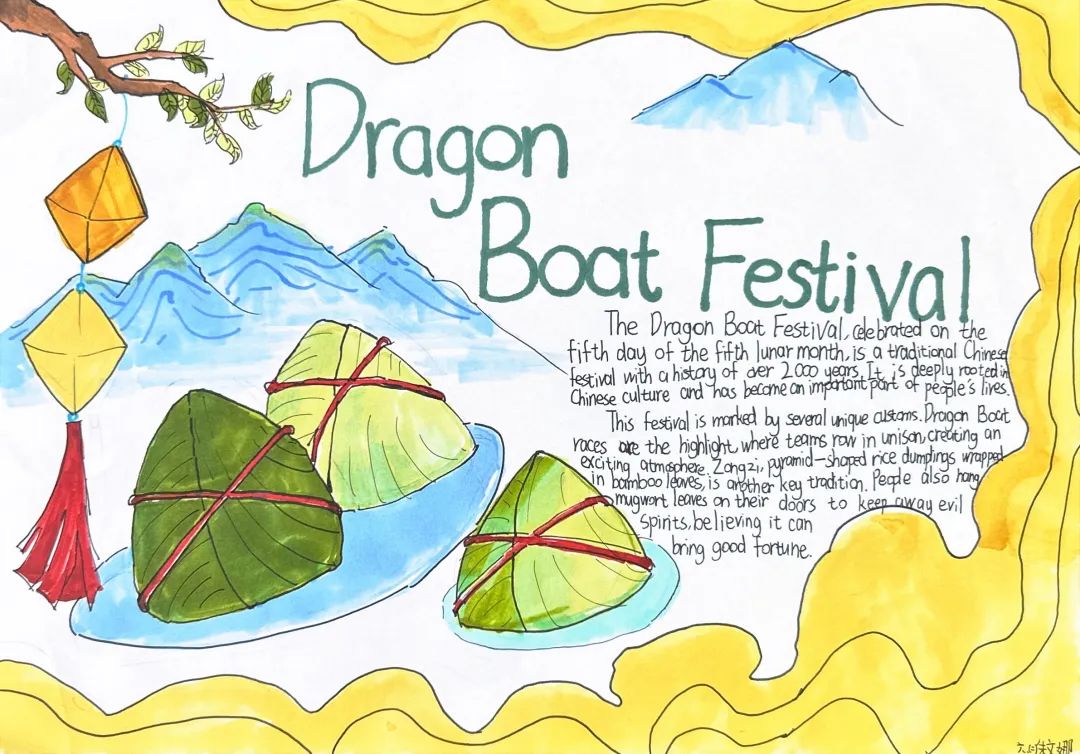 Dragon
Boat Festival
The Dragon Boat Festival, celebrated on the
fifth day of the fifth lunar month, is a traditional Chinese
festival with a history of over 2000 years. It is deeply rooted in
Chinese culture and has become an important part of people's lives.
This festival is marked by several unique customs. Dragon Boat
races are the highlight, where teams row in unison, creating an
exciting atmosphere. Zongzi, pyramid-shaped rice dumplings wrapped
in bamboo leaves, is another key tradition. People also hang
mugwort leaves on their doors to keep away evil
spirits, believing it can
bring good fortune.